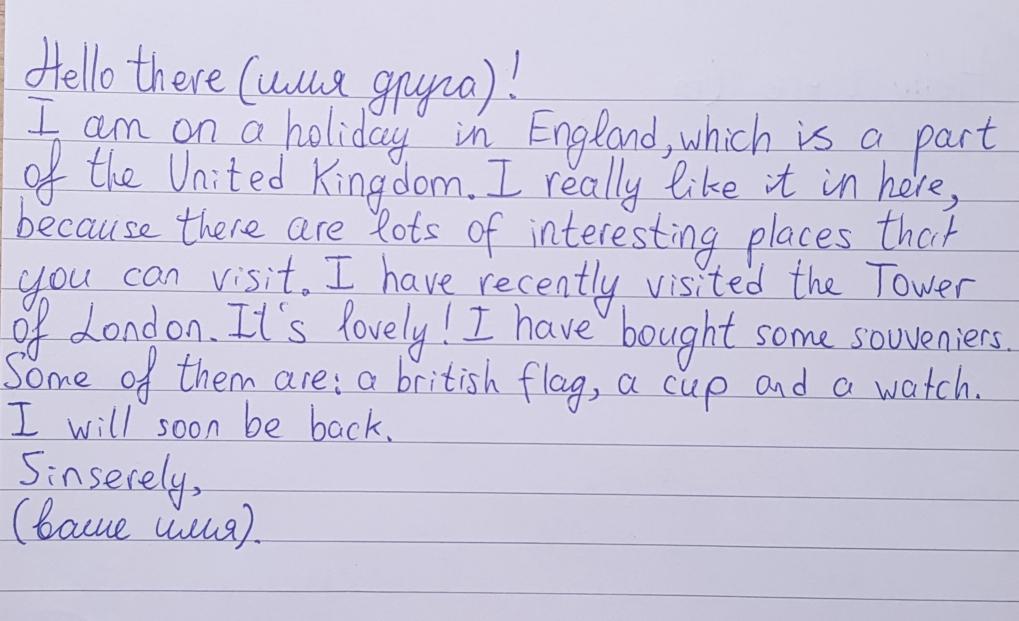 Hello there (имя друга)!
I am on a holiday in England, which is a part
of the United Kingdom. I really like it in here,
because there are lots of interesting places that
you can visit. I have recently visited the Tower
of London. It's lovely! I have bought some souveniers.
Some of them are: a british flag, a cup and a watch.
I will soon be back.
Sinserely,
(ваше имя).